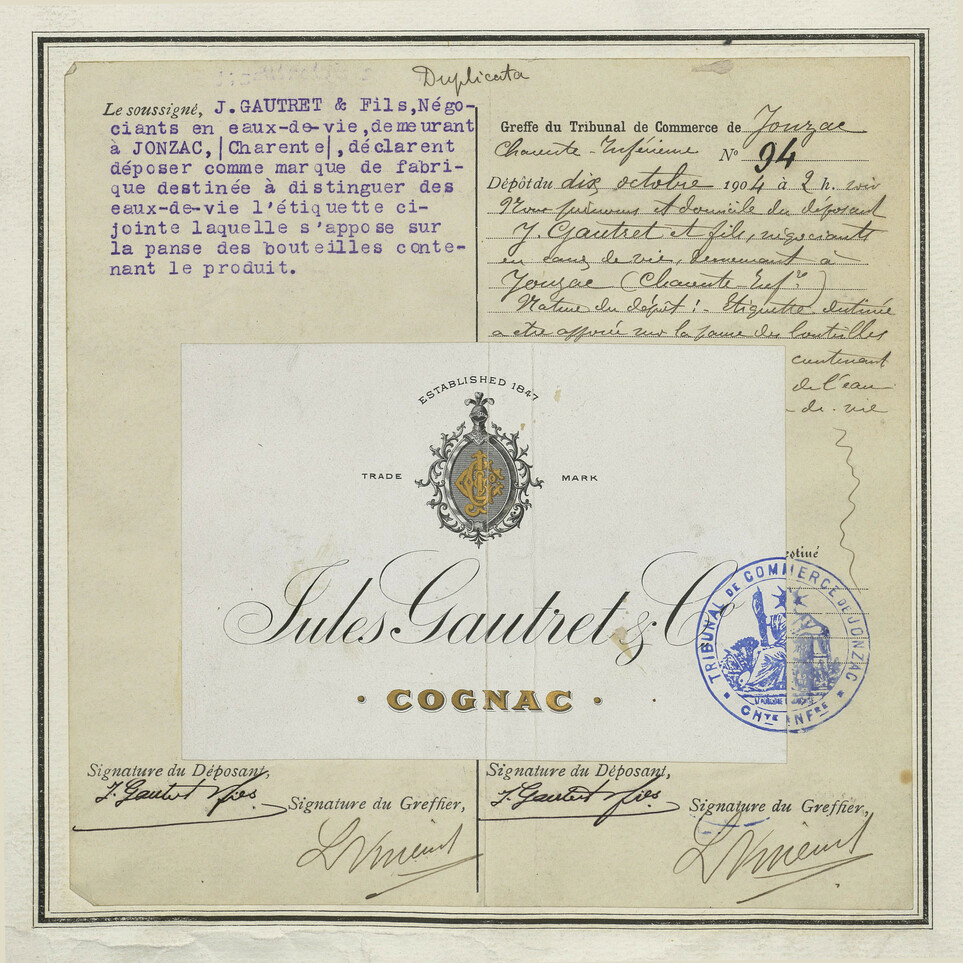 Duplicata
Le soussigné, J.GAUTRET & Fils,Négo-
ciants en eaux-de-vie,demeurant
à JONZAC,|Charente|,déclarent
déposer comme marque de fabri-
que destinée à distinguer des
eaux-de-vie l'étiquette ci-
jointe laquelle s'appose sur
la panse des bouteilles conte-
nant le produit.
Greffe du Tribunal de Commerce de Jonzac
Charente-Inférieure Nº 94
Dépôt du dix octobre 1904 à 2 h. soir
Nom prénoms et domicile du déposant
J. Gautret et fils, négociants
en eaux de vie, demeurant à
Jonzac (Charente-Infre)
Nature du dépôt : Etiquette destinée
a etre apposée sur la panse des bouteilles
contenant
de l'eau
de vie
ESTABLISHED 1847
TRADE MARK
Jules Gautret & Co
• COGNAC •
TRIBUNAL DE COMMERCE DE JONZAC
CHTE INFRE
Signature du Déposant,
J. Gautret & fils
Signature du Greffier,
Signature du Déposant,
J. Gautret & fils
Signature du Greffier,